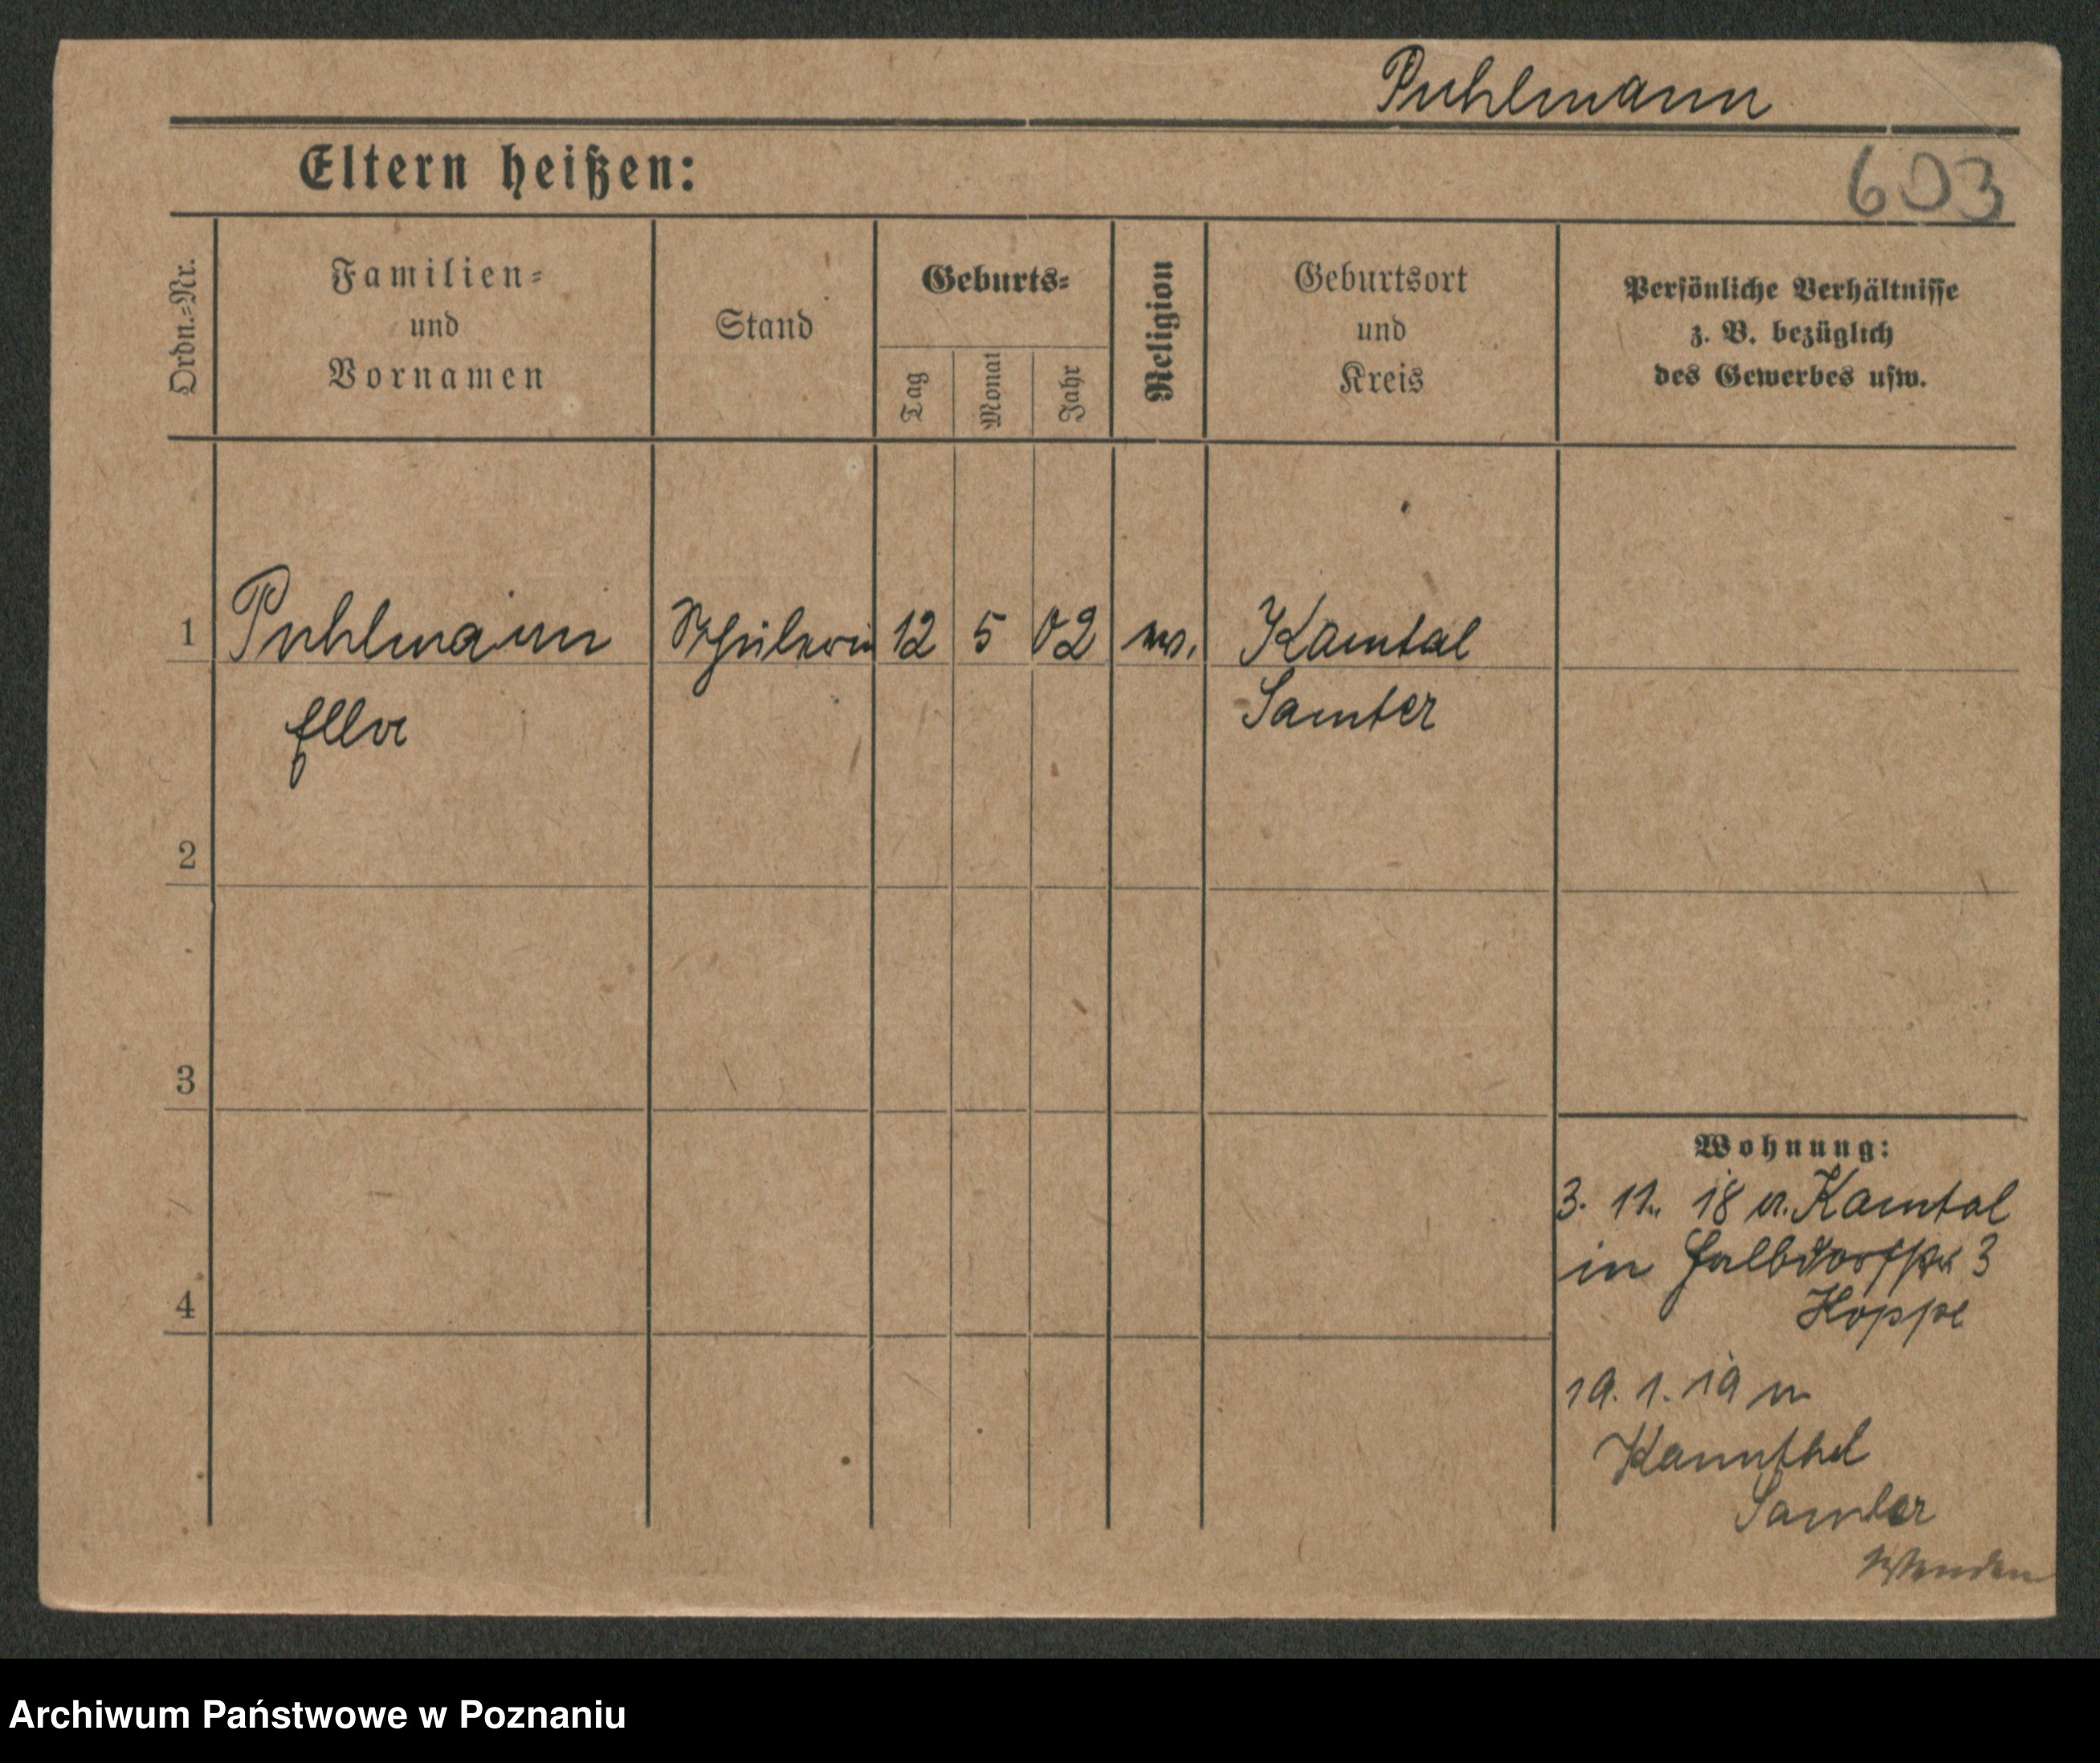 Puhlmann
Eltern heißen:
603
Ordn.-Nr.
Familien-
und
Vornamen
Stand
Geburts-
Tag
Monat
Jahr
Religion
Geburtsort
und
Kreis
Persönliche Verhältnisse
z. B. bezüglich
des Gewerbes usw.
1 Puhlmann Schülerin 12 5 02 ev. Kamtal
Ella Samter
2
3
4
Wohnung:
3. 11. 18 v. Kamtal
in 3
Hoppe
19. 1. 19 n
Kannthal
Samter
Wenden
Archiwum Państwowe w Poznaniu